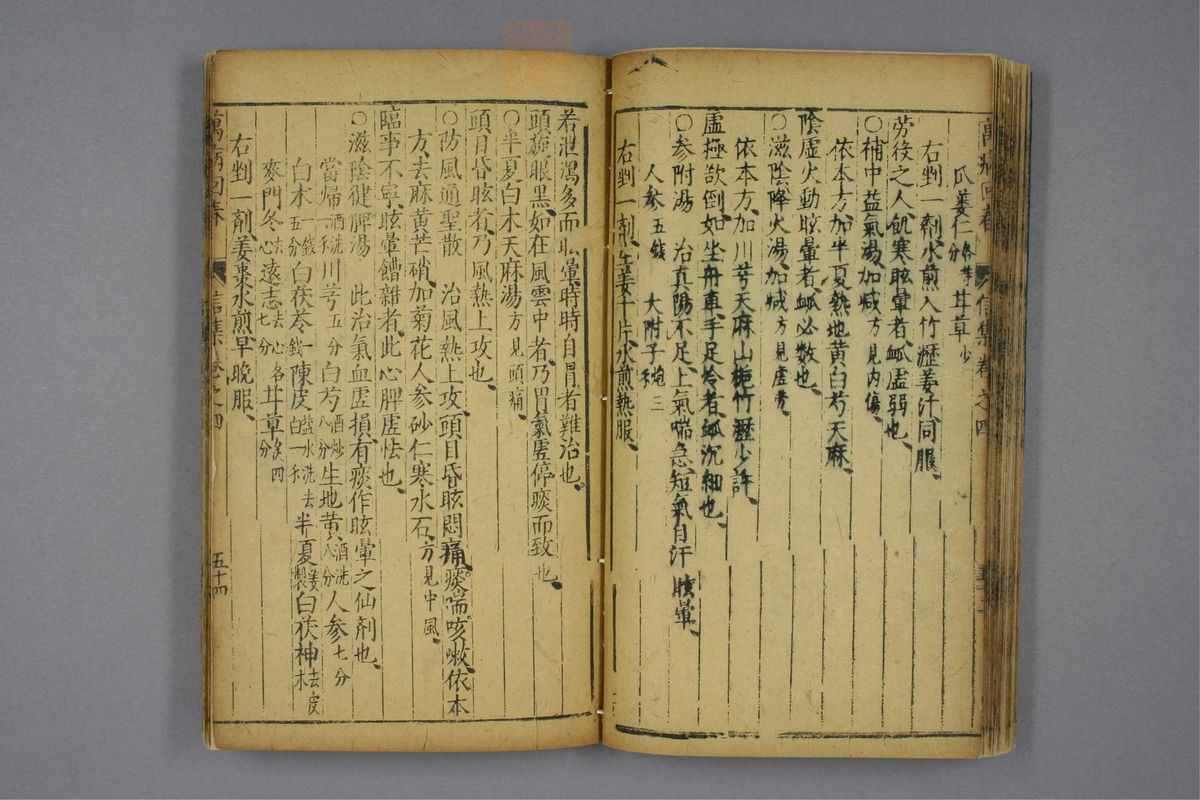 萬病回春 信集 卷之四
瓜蔞仁各等分 甘草少
右剉一劑水煎入竹瀝姜汁同服
勞役之人飢寒眩暈者脉虛弱也
○補中益氣湯加減方見內傷
依本方加半夏熟地黃白芍天麻
陰虛火動眩暈者脉必數也
○滋陰降火湯加減方見虛勞
依本方加川芎天麻山梔竹瀝少許
虛極欲倒如坐舟車手足冷者脉沉細也
○參附湯 治真陽不足上氣喘急短氣自汗眩暈
人參五錢 大附子炮三錢
右剉一劑生姜十片水煎熱服
若泄瀉多而眩暈時時自冒者難治也
頭旋眼黑如在風雲中者乃胃氣虛停痰而致也
○半夏白木天麻湯方見頭痛
頭目昏眩者乃風熱上攻也
○防風通聖散 治風熱上攻頭目昏眩悶痛痰喘咳嗽依本
方去麻黃芒硝加菊花人參砂仁寒水石方見中風
臨事不寧眩暈饇雜者此心脾虛怯也
○滋陰健脾湯 此治氣血虛損有痰作眩暈之仙劑也
當歸酒洗一錢川芎五分白芍酒炒八分生地黃酒洗八分人參七分
白木一錢五分白茯苓一錢陳皮鹽水洗去白一錢半夏姜製白茯神去皮木
麥門冬去心遠志去心各七分甘草炙四分
右剉一劑姜棗水煎早晚服
萬病回春 信集 卷之四 五十四